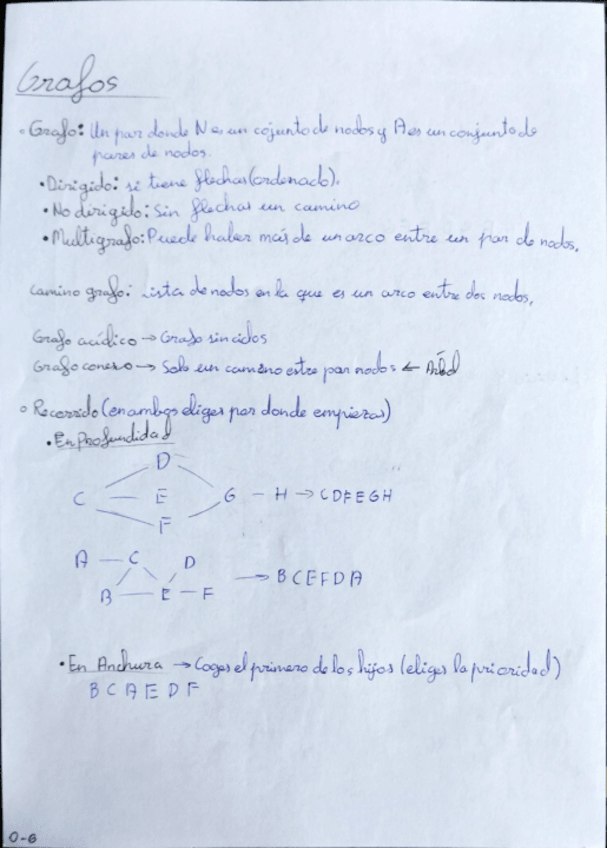 Grafos
◦ Grafo: Un par donde N es un cojunto de nodos y A es un conjunto de
pares de nodos.
• Dirigido: si tiene flechas (ordenado).
• No dirigido: Sin flechas un camino
• Multigrafo: Puede haber más de un arco entre un par de nodos.
Camino grafo: Lista de nodos en la que es un arco entre dos nodos.
Grafo acíclico → Grafo sin ciclos
Grafo conexo → Solo un camino entre par nodos ← Árbol
◦ Recorrido (en ambos eliges por donde empiezas)
• En Profundidad
D
C — E G — H → C D F E G H
F
A — C D
B — E — F → B C E F D A
• En Anchura → Coges el primero de los hijos (eliges la prioridad)
B C A E D F
0-6